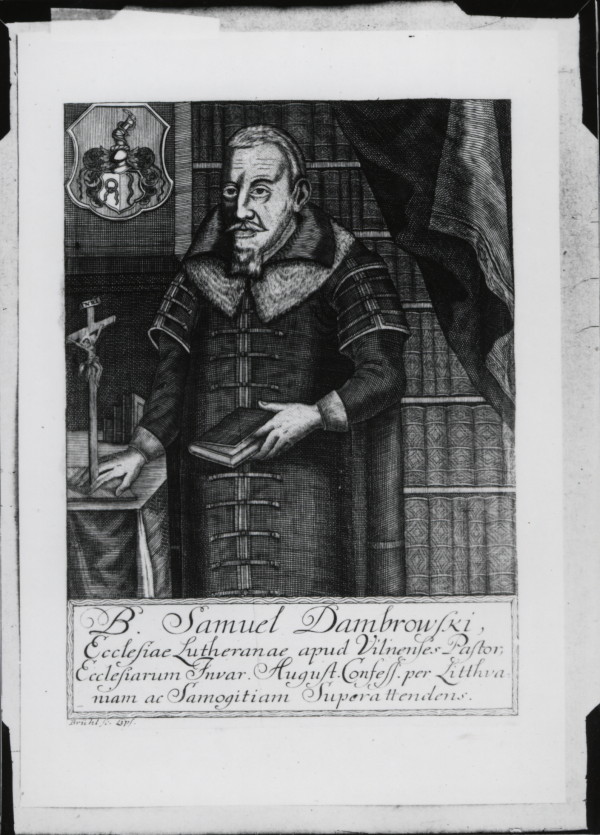 INRI
B. Samuel Dambrowski,
Ecclesiae Lutheranae apud Vilnenses Pastor,
Ecclesiarum Invar. August. Confess. per Litthva-
niam ac Samogitiam Superattendens.
Brühl sc. Lips.